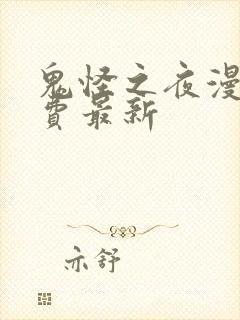 鬼怪之夜漫
費最新
亦舒